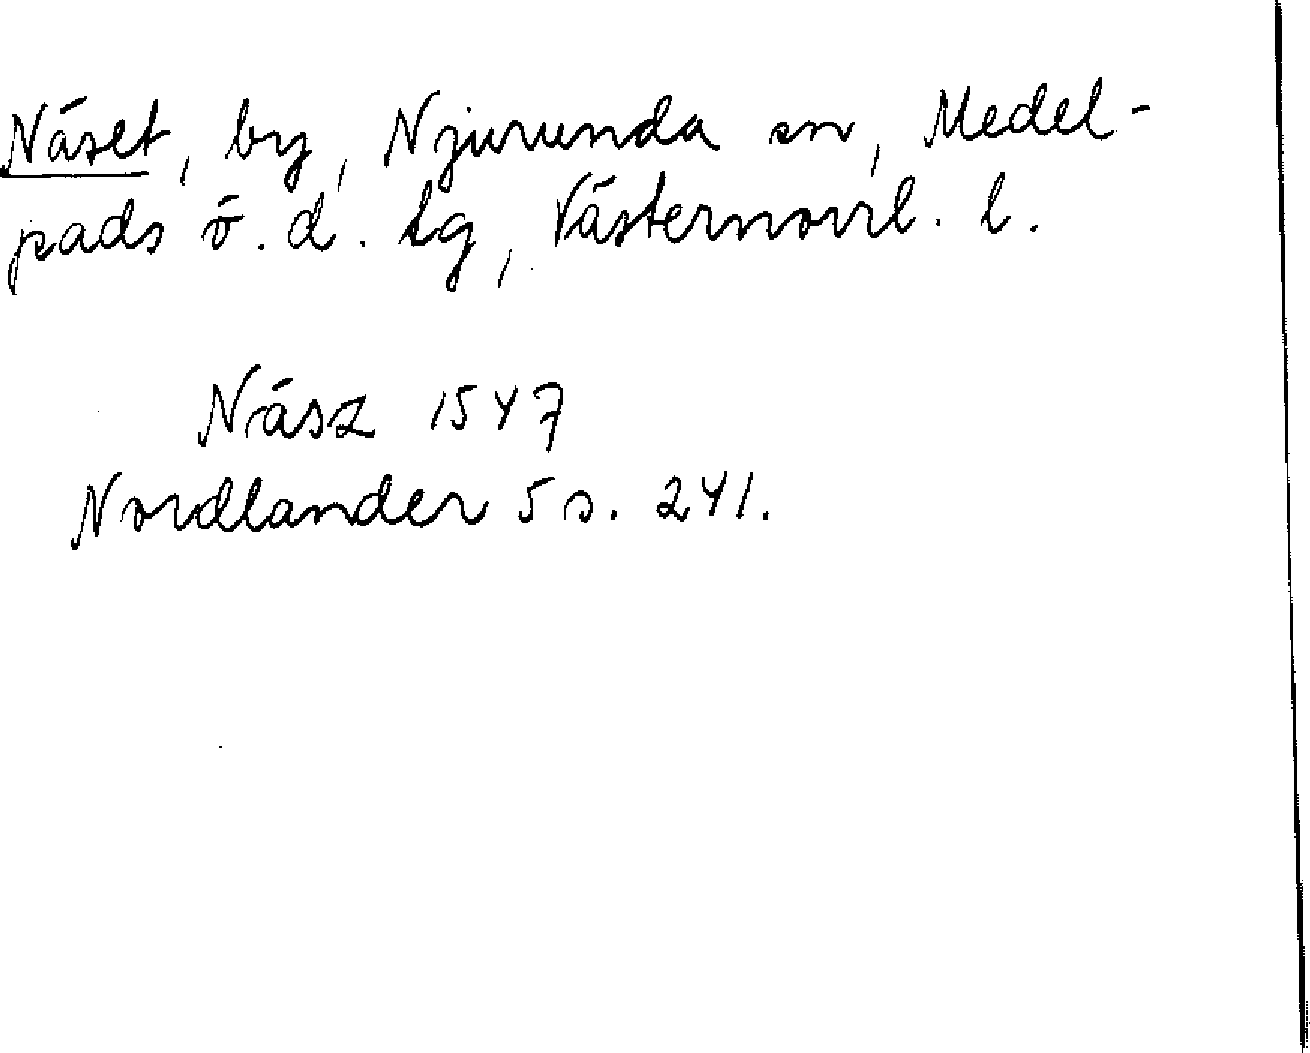 Näset, by, Njurunda sn, Medel-
pads ö. d. tg, Västernorrl. l.
Näsz 1547
Nordlander 5 s. 241.